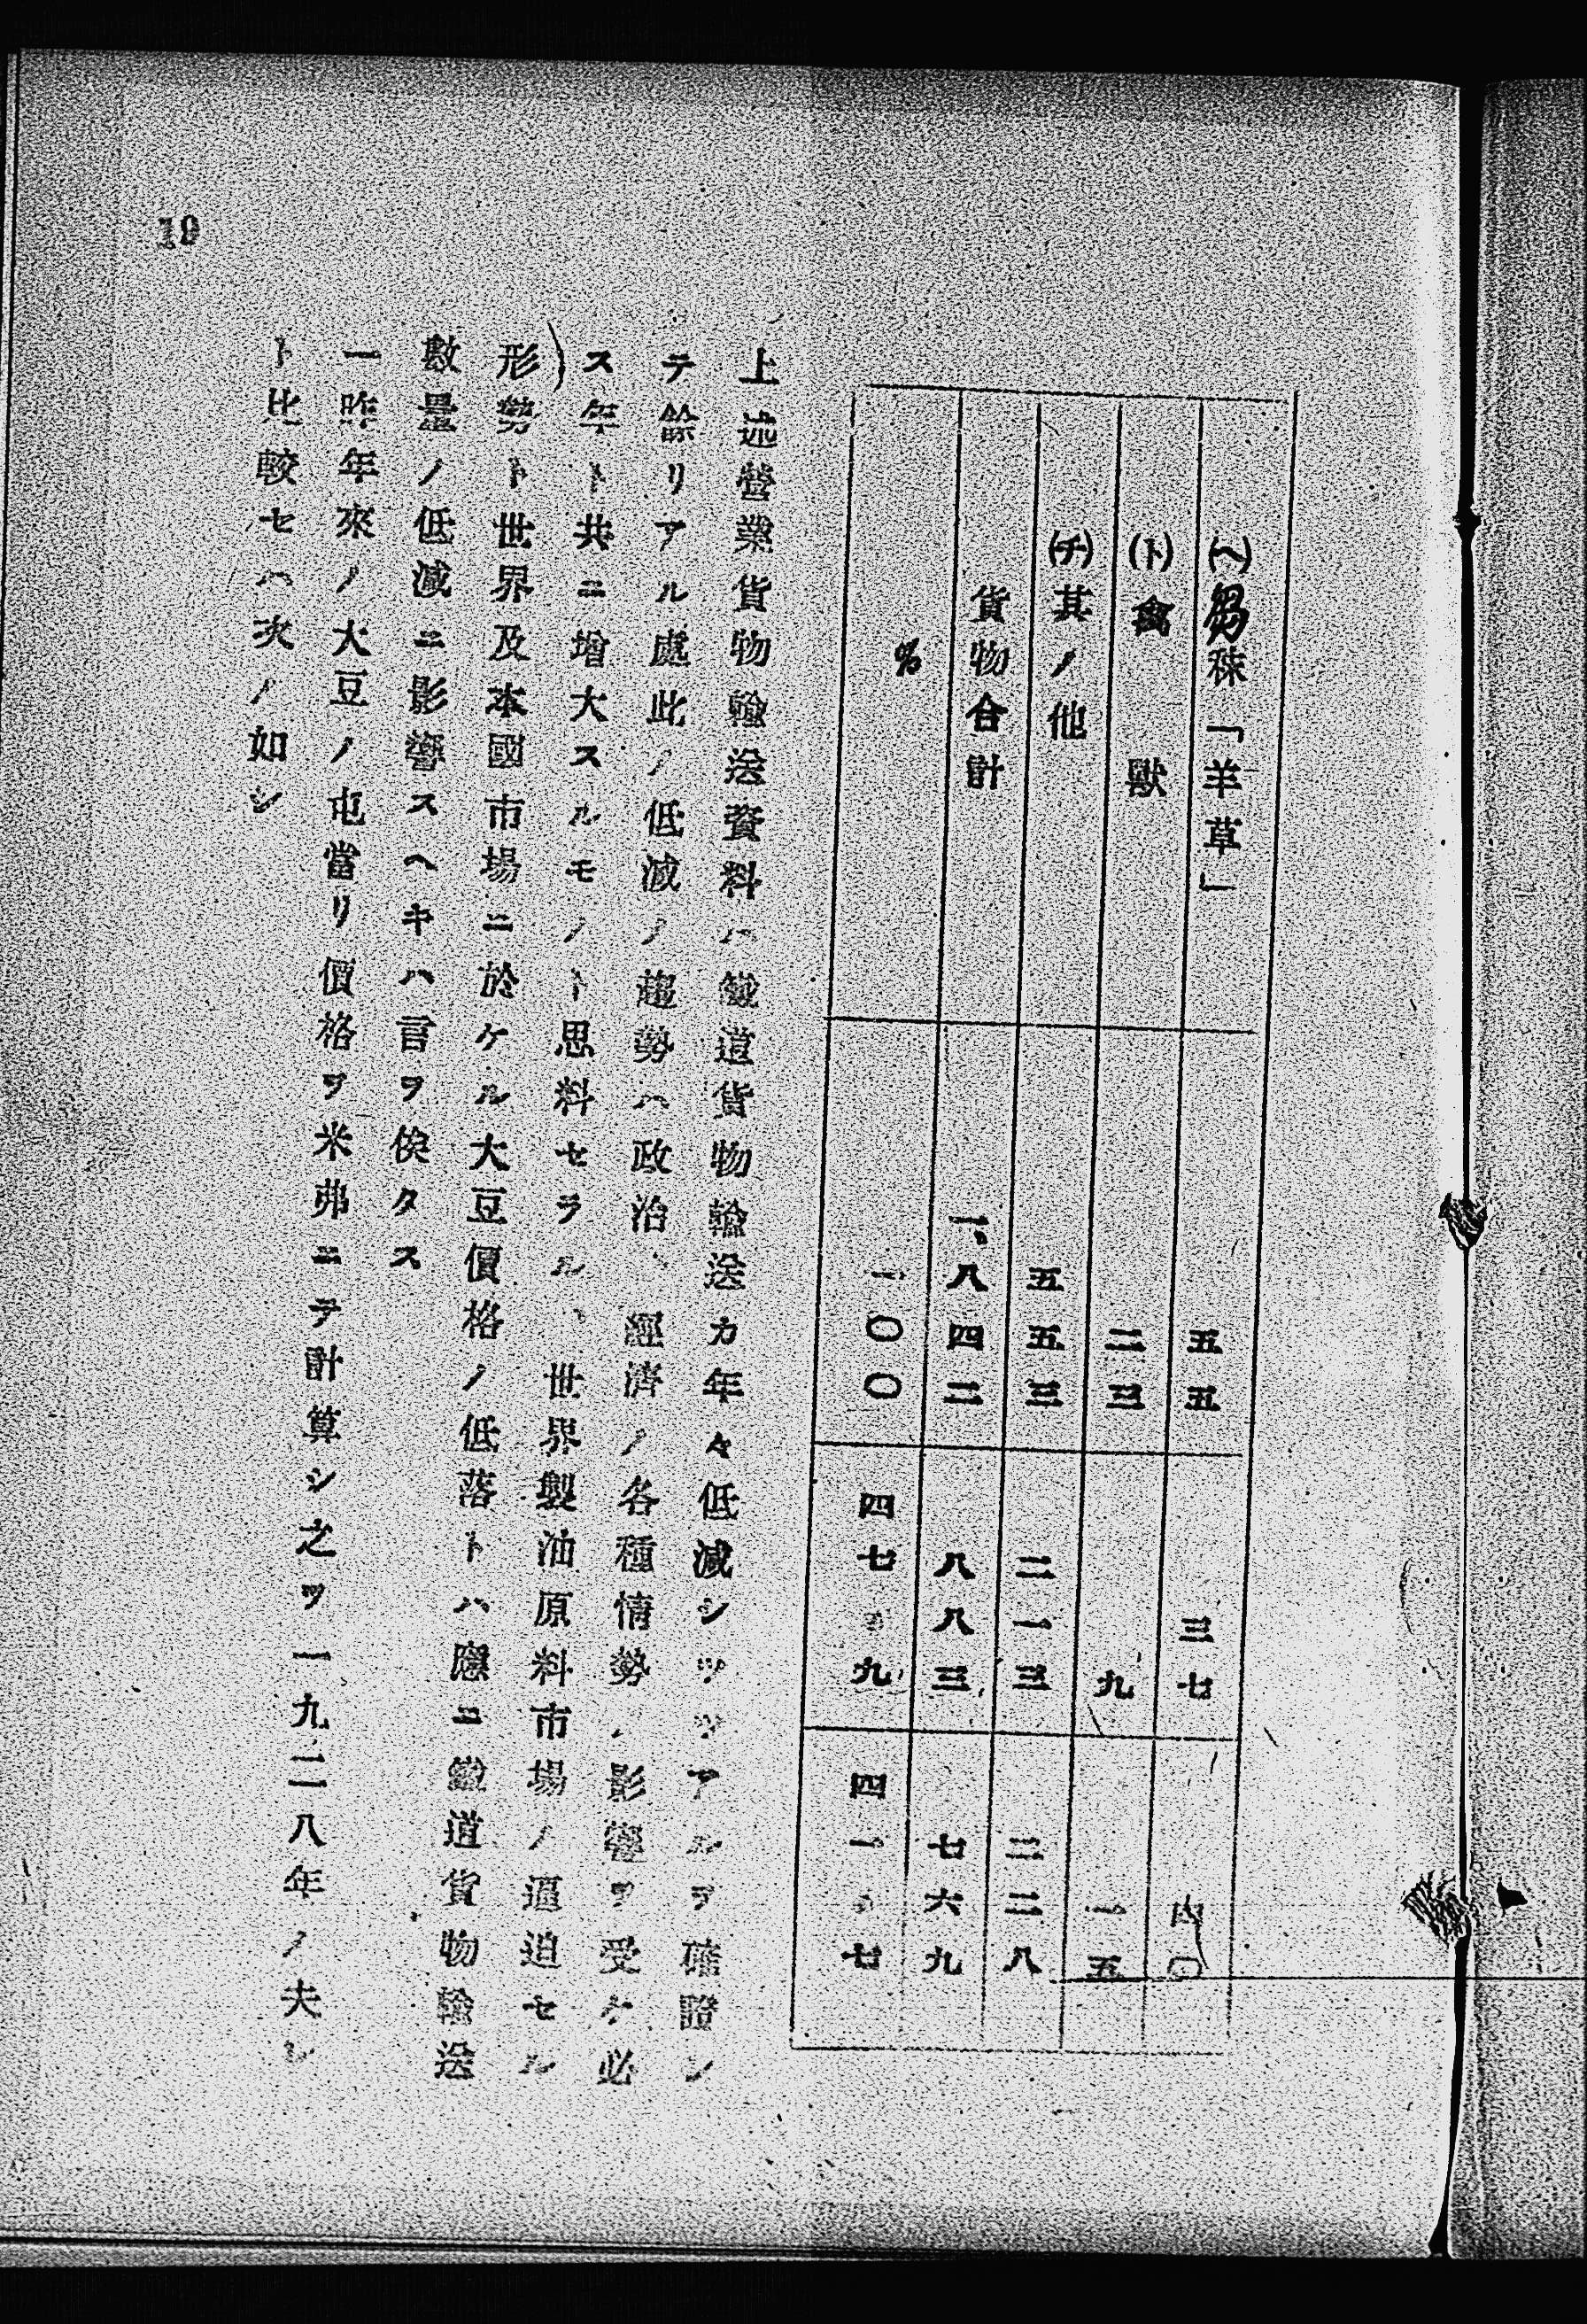 (ヘ)芻秣「羊草」 五五 三七 四〇
(ト)禽獸 二三 九 一五
(チ)其ノ他 五五三 二一三 二二八
貨物合計 一、八四二 八八三 七六九
% 一〇〇 四七.九 四一.七
上述營業貨物輸送資料ハ鐵道貨物輸送カ年々低減シツツアルヲ確證シ
テ餘リアル處此ノ低減ノ趨勢ハ政治、經濟ノ各種情勢ノ影響ヲ受ケ必
ス年ト共ニ增大スルモノト思料セラル、世界製油原料市場ノ逼迫セル
形勢ト世界及本國市場ニ於ケル大豆價格ノ低落トハ應ニ鐵道貨物輸送
數量ノ低減ニ影響スヘキハ言ヲ俟タス
一昨年來ノ大豆ノ屯當リ價格ヲ米弗ニテ計算シ之ヲ一九二八年ノ夫レ
ト比較セハ次ノ如シ
19